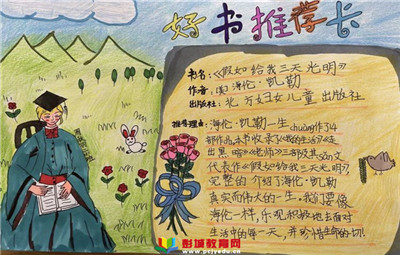 好书推荐卡
书名:《假如给我三天光明》
作者:(美)海伦·凯勒
出版社:北方妇女儿童出版社
推荐理由:海伦·凯勒一生chuàng作了14
部作品,本书收录了《我的生活》《走
出黑暗》《老师》三部及其sǎn文
代表作《假如给我三天光明》
完整的介绍了海伦·凯勒
真实而伟大的一生,我们要像
海伦一样,乐观积极地去面对
生活中的每一天,并珍惜生命的一切!
彭城教育网